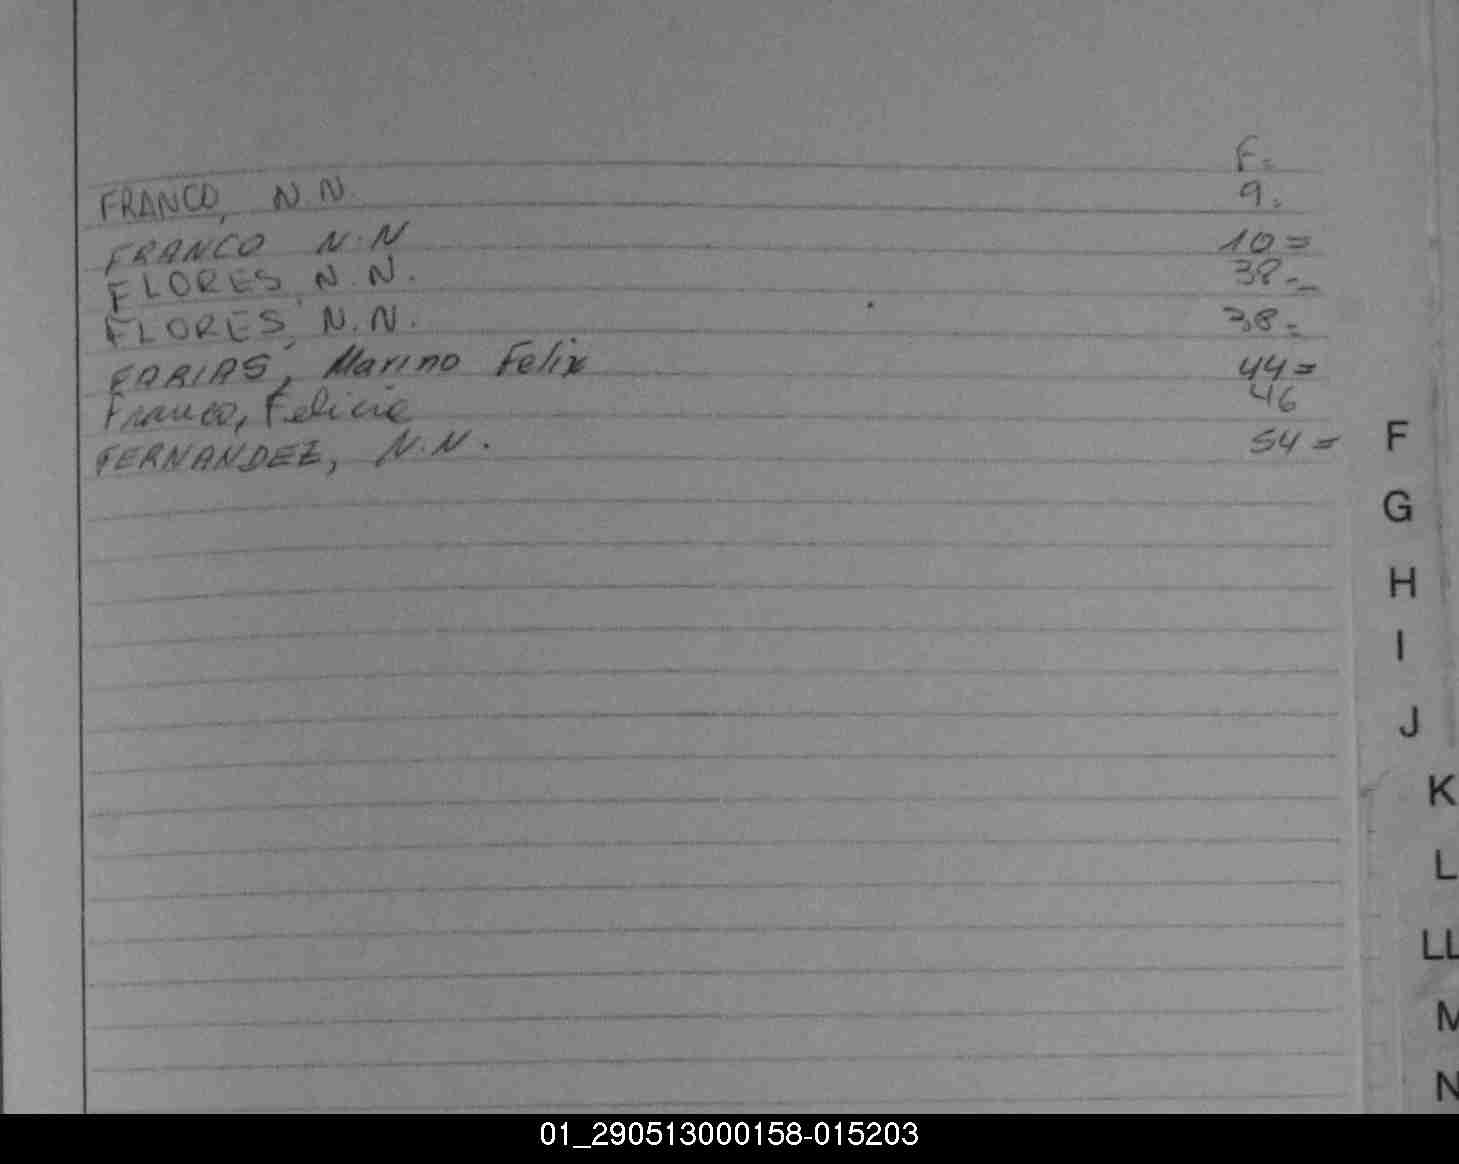 F=
FRANCO, N.N. 9.=
FRANCO N.N 10=
FLORES, N.N. 38=
FLORES, N.N. 38.=
FARIAS, Marino Felix 44=
Franco, Felicie 46
FERNANDEZ, N.N. 54=
F
G
H
I
J
K
L
LL
M
N
01_290513000158-015203